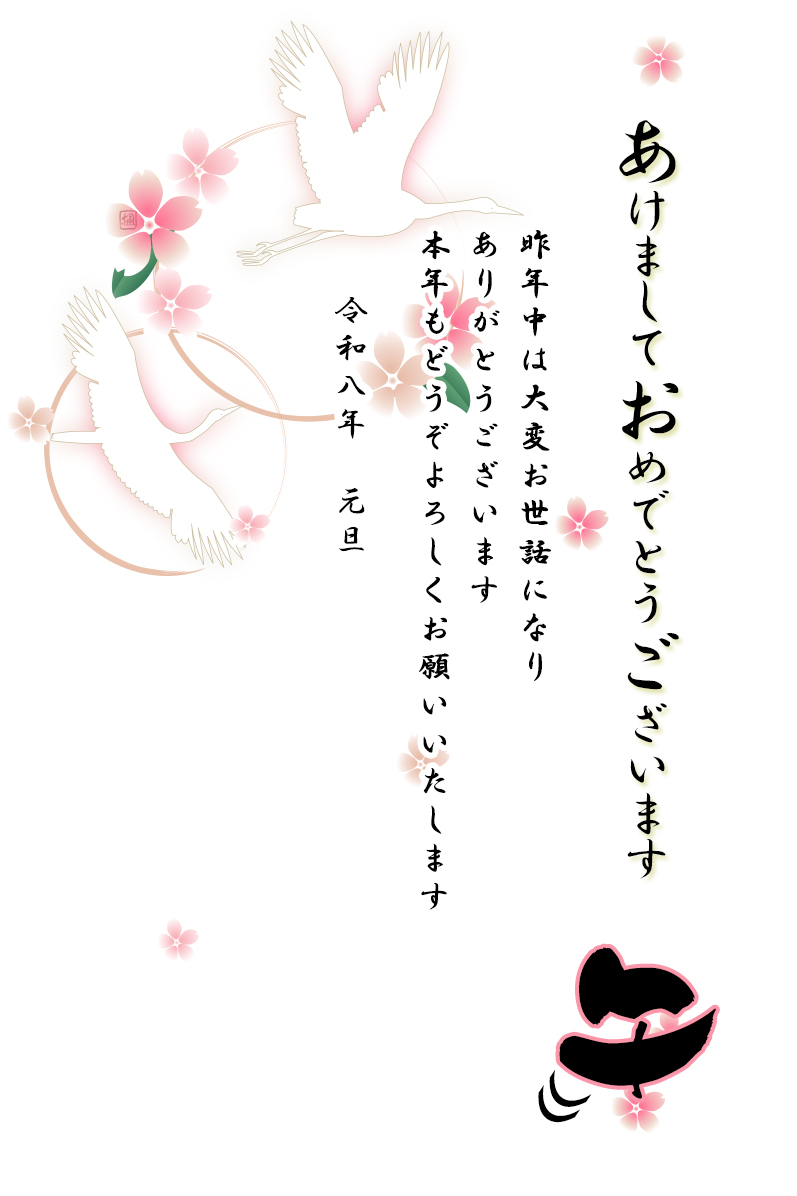 あけましておめでとうございます
昨年中は大変お世話になり
ありがとうございます
本年もどうぞよろしくお願いいたします
令和八年　元旦
午